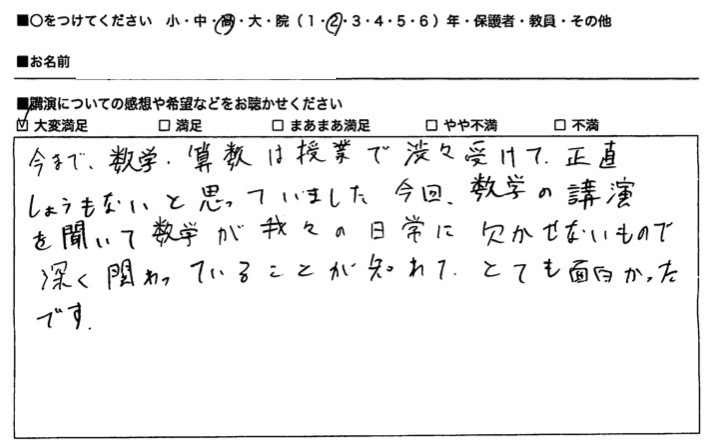 ■○をつけてください 小・中・高・大・院(1・2・3・4・5・6)年・保護者・教員・その他
■お名前
■講演についての感想や希望などをお聴かせください
☑ 大変満足 □ 満足 □ まあまあ満足 □ やや不満 □ 不満
今まで、数学、算数は授業で渋々受けて、正直
しょうもないと思っていました 今回、数学の講演
を聞いて数学が我々の日常に欠かせないもので
深く関わっていることが知れて、とても面白かった
です.